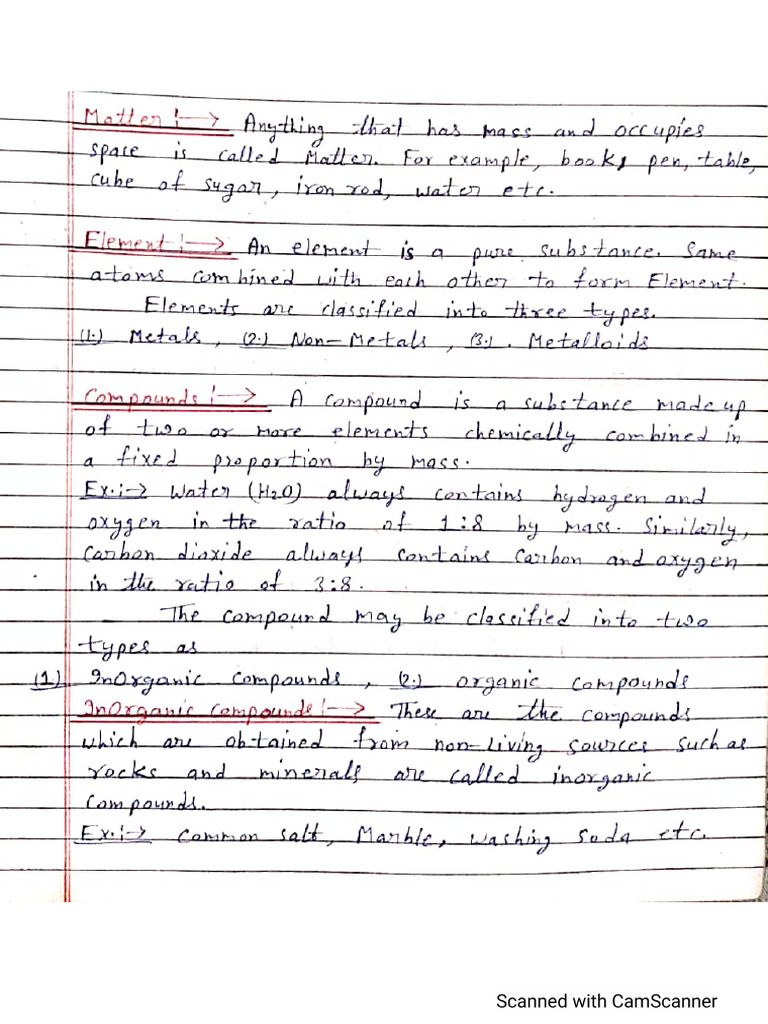 Matter :→ Anything that has mass and occupies
space is called Matter. For example, book, pen, table,
cube of sugar, iron rod, water etc.
Element :→ An element is a pure substance. Same
atoms combined with each other to form Element.
Elements are classified into three types.
(1.) Metals, (2.) Non-Metals, (3.). Metalloids
Compounds :→ A compound is a substance made up
of two or more elements chemically combined in
a fixed proportion by mass.
Ex.:→ Water (H2O) always contains hydrogen and
oxygen in the ratio of 1:8 by mass. Similarly,
Carbon dioxide always contains Carbon and oxygen
in the ratio of 3:8.
The compound may be classified into two
types as
(1.) InOrganic compounds, (2.) organic compounds
InOrganic compounds :→ These are the compounds
which are obtained from non-living sources such as
rocks and minerals are called inorganic
compounds.
Ex.:→ Common salt, Marble, washing soda etc.
Scanned with CamScanner